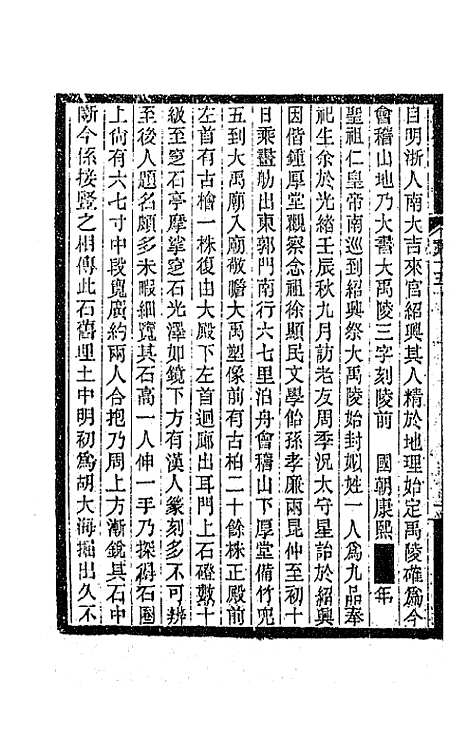 自明浙人南大吉來官紹興其人精於地理始定禹陵確爲今
會稽山地乃大書大禹陵三字刻陵前　國朝康熙　年
聖祖仁皇帝南巡到紹興祭大禹陵始封姒姓一人爲九品奉
祀生余於光緒壬辰秋九月訪老友周季況太守星詒於紹興
因偕鍾厚堂觀察念祖徐顯民文學飴孫孝廉兩昆仲至初十
日乘畫舫出東郭門南行六七里泊舟會稽山下厚堂備竹兜
五到大禹廟入廟敬瞻大禹塑像前有古柏二十餘株正殿前
左首有古檜一株復由大殿下左首迴廊出耳門上石磴數十
級至窆石亭摩挲窆石光澤如鏡下方有漢人篆刻多不可辨
至後人題名頗多未暇細覽其石高一人伸一手乃探得石圓
上尙有六七寸中段寬廣約兩人合抱乃周上方漸銳其石中
斷今係接豎之相傳此石舊埋土中明初爲胡大海掘出久不